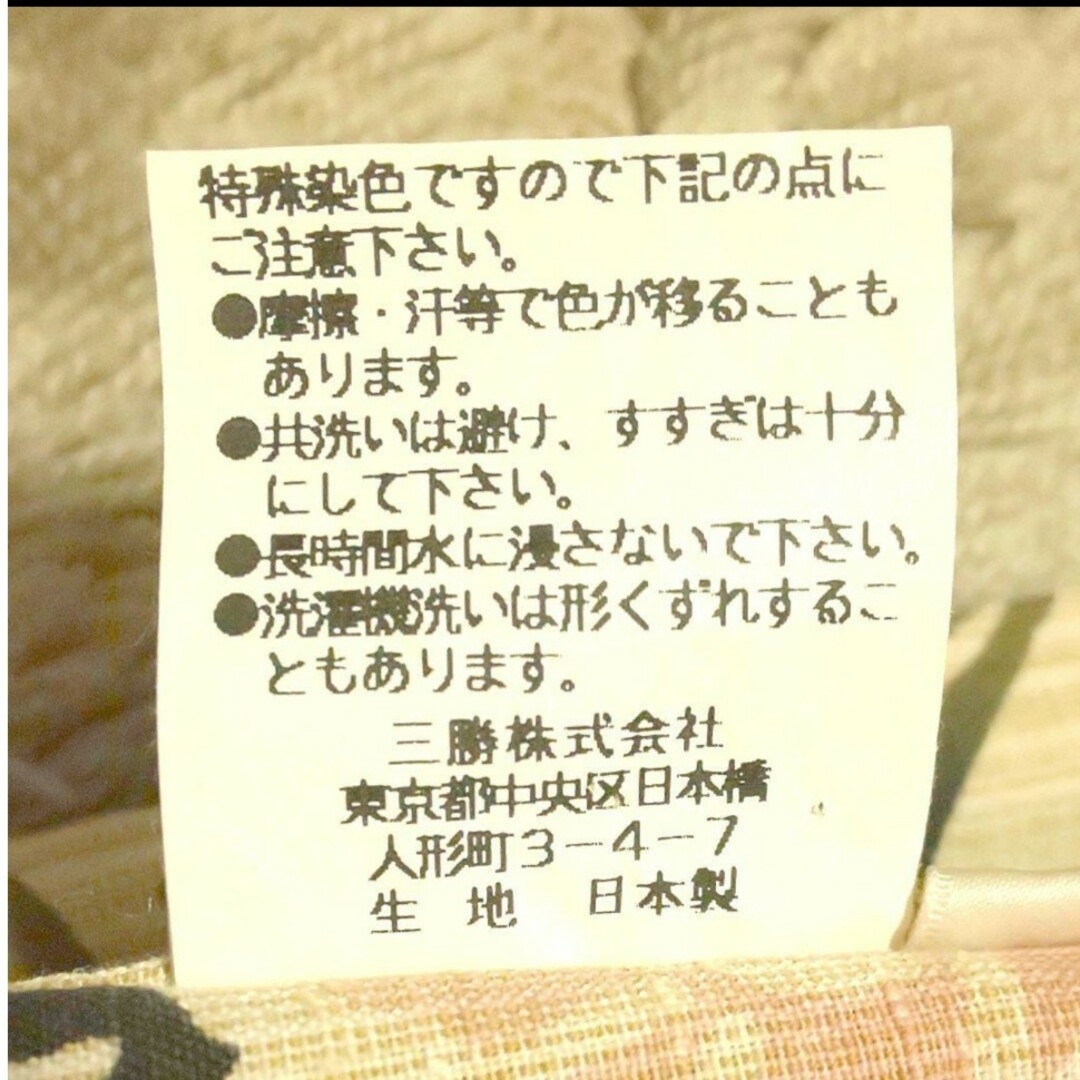 特殊染色ですので下記の点に
ご注意下さい。
●摩擦・汗等で色が移ることも
あります。
●共洗いは避け、すすぎは十分
にして下さい。
●長時間水に浸さないで下さい。
●洗濯機洗いは形くずれするこ
ともあります。
三勝株式会社
東京都中央区日本橋
人形町3-4-7
生 地 日本製